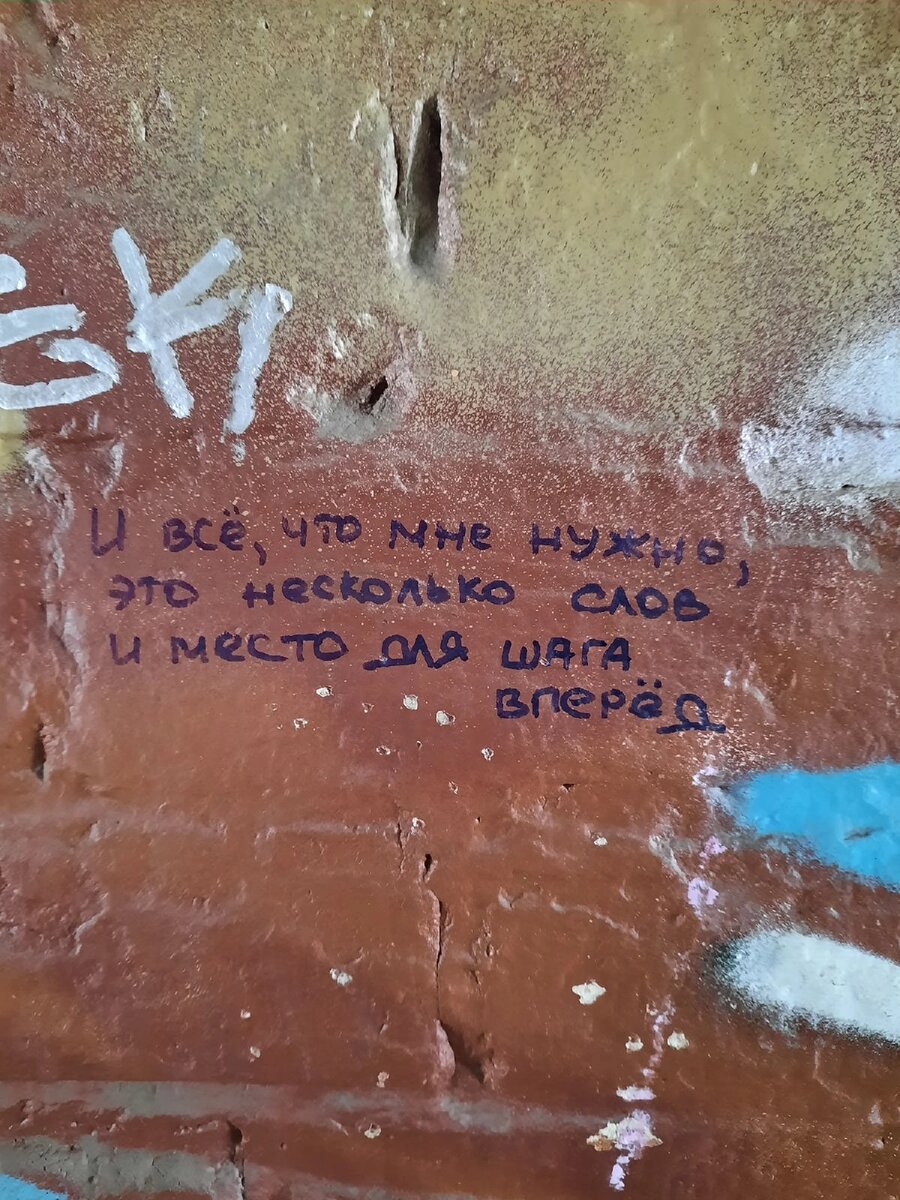 SKI
И всё, что мне нужно,
это несколько слов
и место для шага
вперёд